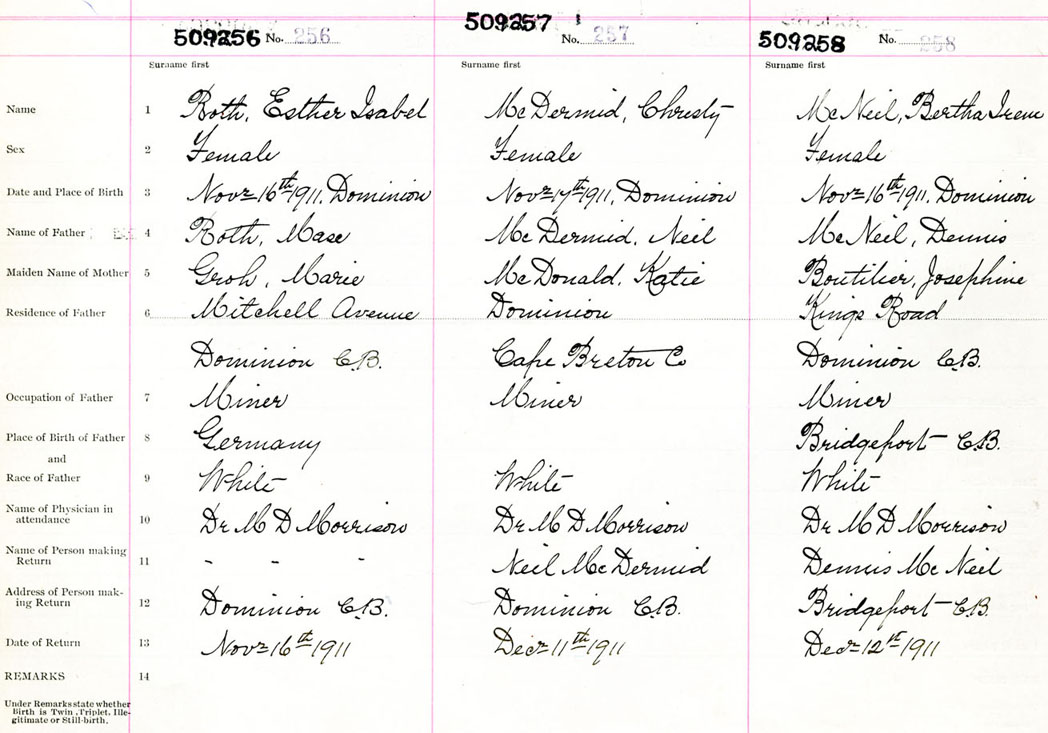 509256 No. 256 509257 No. 257 509258 No. 258
Surname first Surname first Surname first
Name 1 Roth, Esther Isabel McDermid, Christy McNeil, Bertha Irene
Sex 2 Female Female Female
Date and Place of Birth 3 Novr 16th 1911, Dominion Novr 17th 1911, Dominion Novr 16th 1911, Dominion
Name of Father 4 Roth, McDermid, Neil McNeil, Dennis
Maiden Name of Mother 5 Groh, Marie McDonald, Katie Boutilier, Josephine
Residence of Father 6 Mitchell Avenue Dominion Kings Road
Dominion C.B. Cape Breton Co Dominion C.B.
Occupation of Father 7 Miner Miner Miner
Place of Birth of Father 8 Germany Bridgeport C.B.
and
Race of Father 9 White White White
Name of Physician in
attendance 10 Dr M D Morrison Dr M D Morrison Dr M D Morrison
Name of Person making
Return 11 - - - Neil McDermid Dennis McNeil
Address of Person mak-
ing Return 12 Dominion C.B. Dominion C.B. Bridgeport C.B.
Date of Return 13 Novr 16th 1911 Decr 11th 1911 Decr 12th 1911
REMARKS 14
Under Remarks state whether
Birth is Twin, Triplet, Ille-
gitimate or Still-birth.